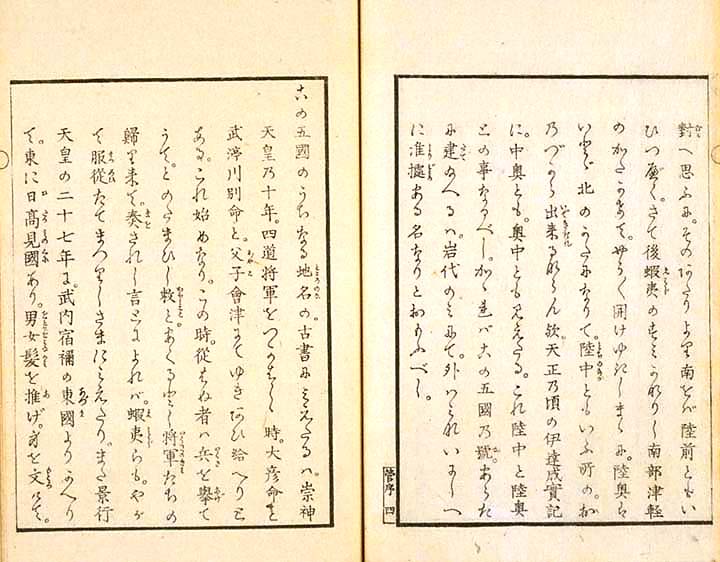 對へ思ふに。そのわたりより南をば陸前ともい
ひつべく。さて後蝦夷のすみかなりし南部津輕
のかたかけて。やうやく開けゆきしまゝに。陸奥は
いとゞ北のかたになりて。陸中ともいふ所の。お
乃づから出来るならん歟。天正乃頃の伊達成實記
に。中奥とも。奥中とも見えたる。これ陸中と陸奥
との事なるべし。かゝればこの五國乃號。あらた
に建るは岩代のみにて。外はいにしへ
に准據ある名なりとおもふべし。
菅序 四
この五國のうちなる地名の。古書に見えたるは。崇神
天皇乃十年。四道将軍をつかはしゝ時。大彦命と
武渟川別命と。父子會津にてゆきあひ給へりと
ある。これ始めなり。この時。従はぬ者ハ兵を擧て
うて。とのたまひし敕と。あくるとし将軍たちの
歸り来て。奏されし言とによれバ。蝦夷らも。やが
て服従たてまつりしさまに見えたり。また景行
天皇の二十七年に。武内宿禰の東國よりかへり
て。東に日高見國あり。男女髪を推げ。身を文けて。